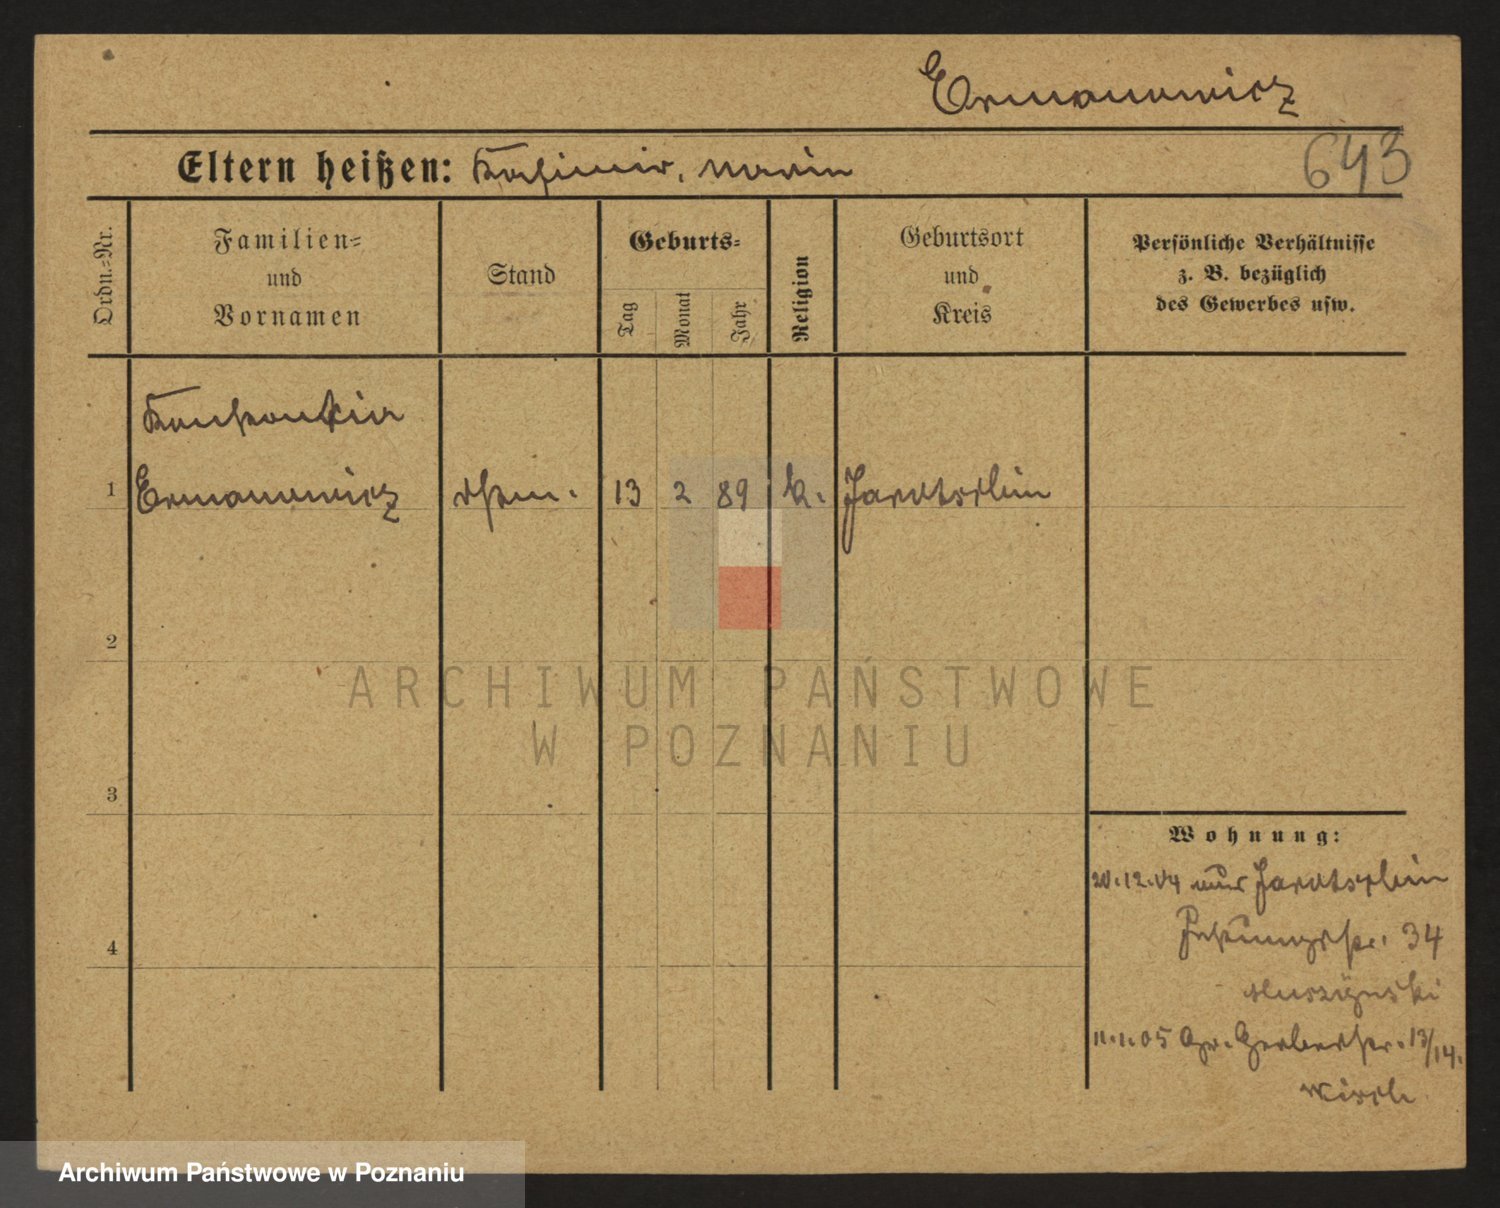 Ermanowicz
643
Eltern heißen: Kasimir, Maria
Ordn.-Nr.
Familien-
und
Vornamen
Stand
Geburts-
Tag
Monat
Jahr
Religion
Geburtsort
und
Kreis
Persönliche Verhältnisse
z. B. bezüglich
des Gewerbes usw.
Konstantin
1 Ermanowicz 13 2 89 k. Jarotschin
2
3
4
Wohnung:
20.12.04 aus Jarotschin
34
11.1.05 Gr. Gerberstr. 13/14.
ARCHIWUM PAŃSTWOWE
W POZNANIU
Archiwum Państwowe w Poznaniu